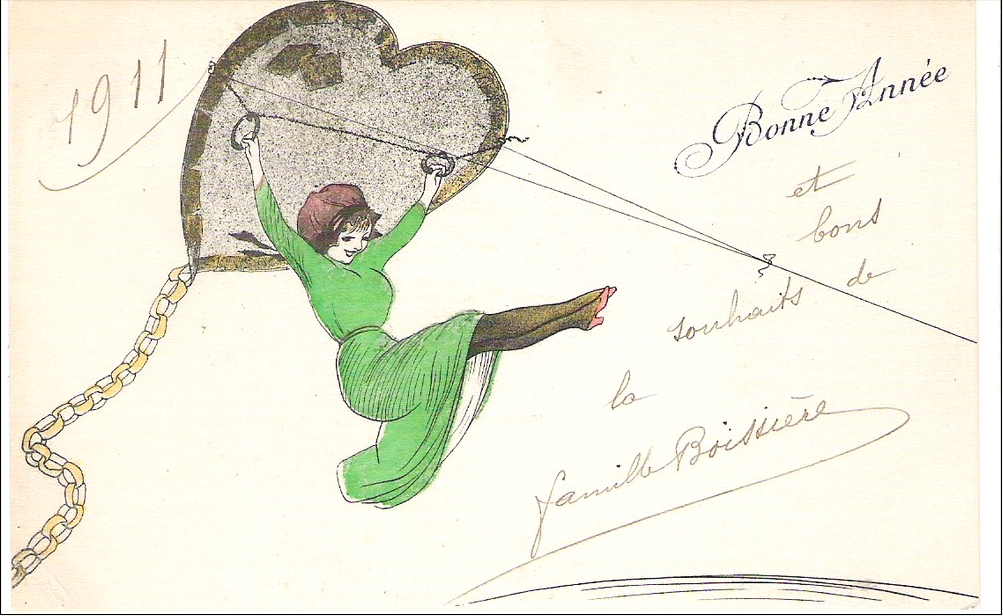 1911
Bonne Année
et
bons
souhaits de
la
famille Boissière